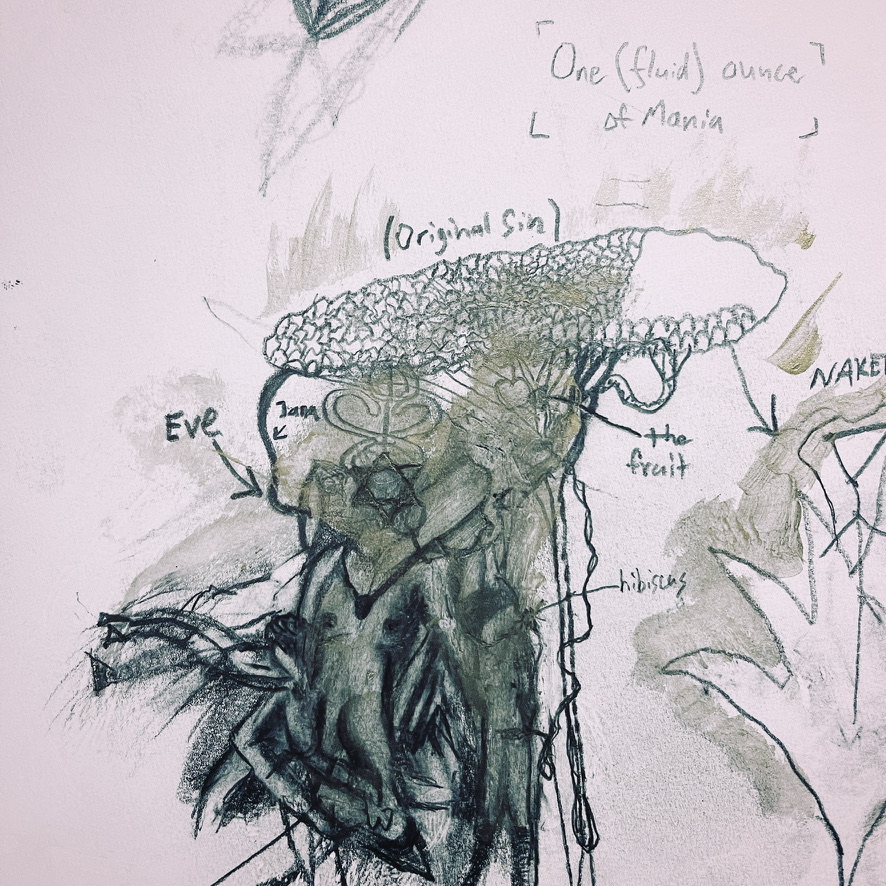 One (fluid) ounce
of Mania
(Original Sin)
NAKE
Eve
the
fruit
hibiscus